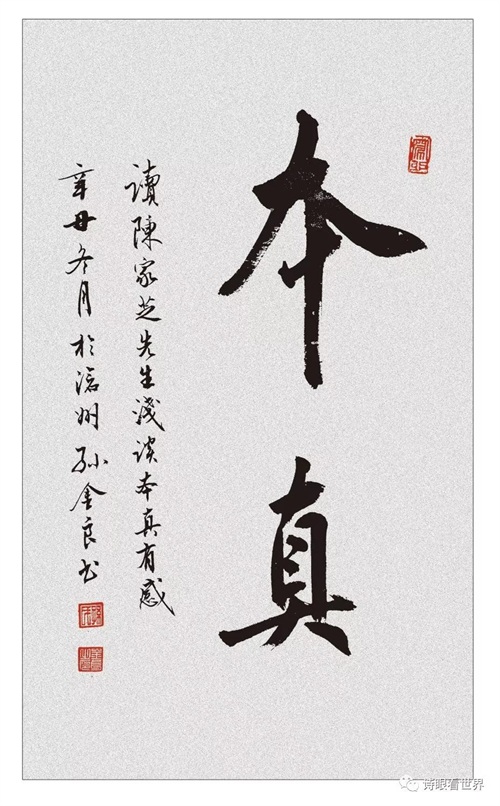 本真
讀陳家芝先生淺談本真有感
辛丑冬月於滄州孙金良书
诗眼看世界